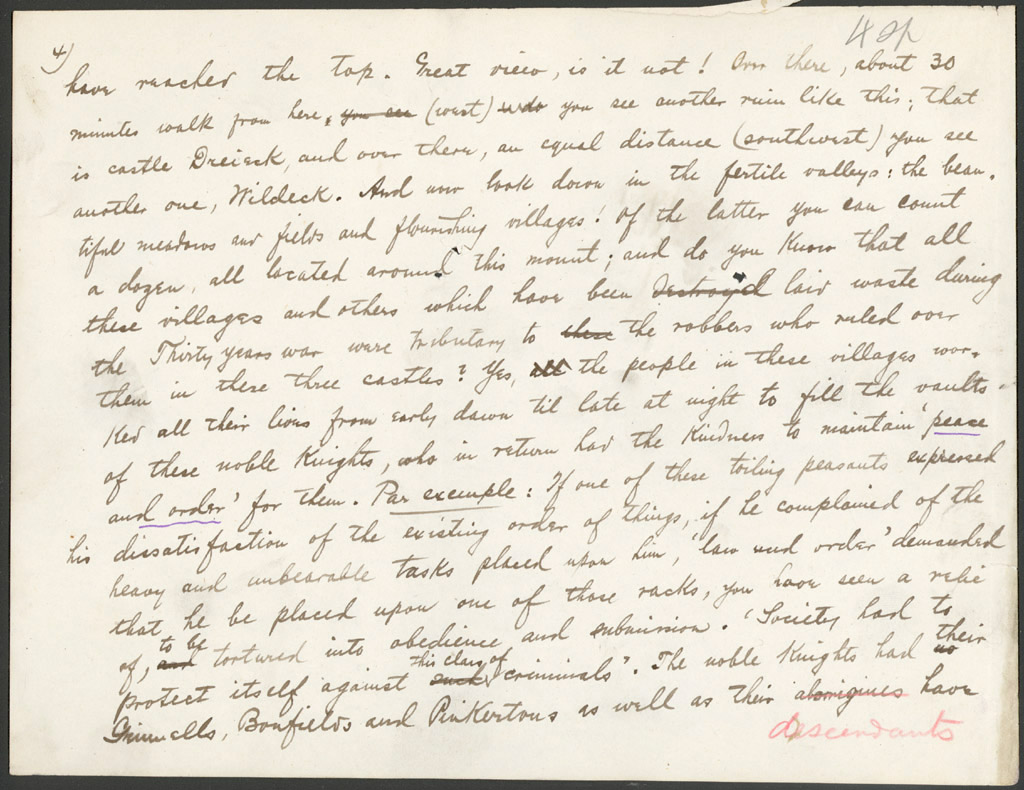 4)
4 sp
have reached the top. Great view, is it not! Over there, about 30
minutes walk from here, you see (west) you see another ruin like this; that
is castle Dreieck, and over there, an equal distance (southwest) you see
another one, Wildeck. And now look down in the fertile valleys: the beau-
tiful meadows and fields and flourishing villages! Of the latter you can count
a dozen, all located around this mount; and do you know that all
these villages and others which have been destroyed laid waste during
the Thirty years war were tributary to these the robbers who ruled over
them in these three castles? Yes, all the people in these villages wor-
ked all their lives from early dawn til late at night to fill the vaults
of these noble Knights, who in return had the kindness to maintain 'peace
and order' for them. Par exemple: If one of these toiling peasants expressed
his dissatisfaction of the existing order of things, if he complained of the
heavy and unbearable tasks placed upon him, 'law and order' demanded
that he be placed upon one of those racks, you have seen a relic
of, and to be tortured into obedience and submission. 'Society had to
protect itself against such this class of criminals'. The noble Knights had no their
Grinnells, Bonfields and Pinkertons as well as their aborigines have
descendants